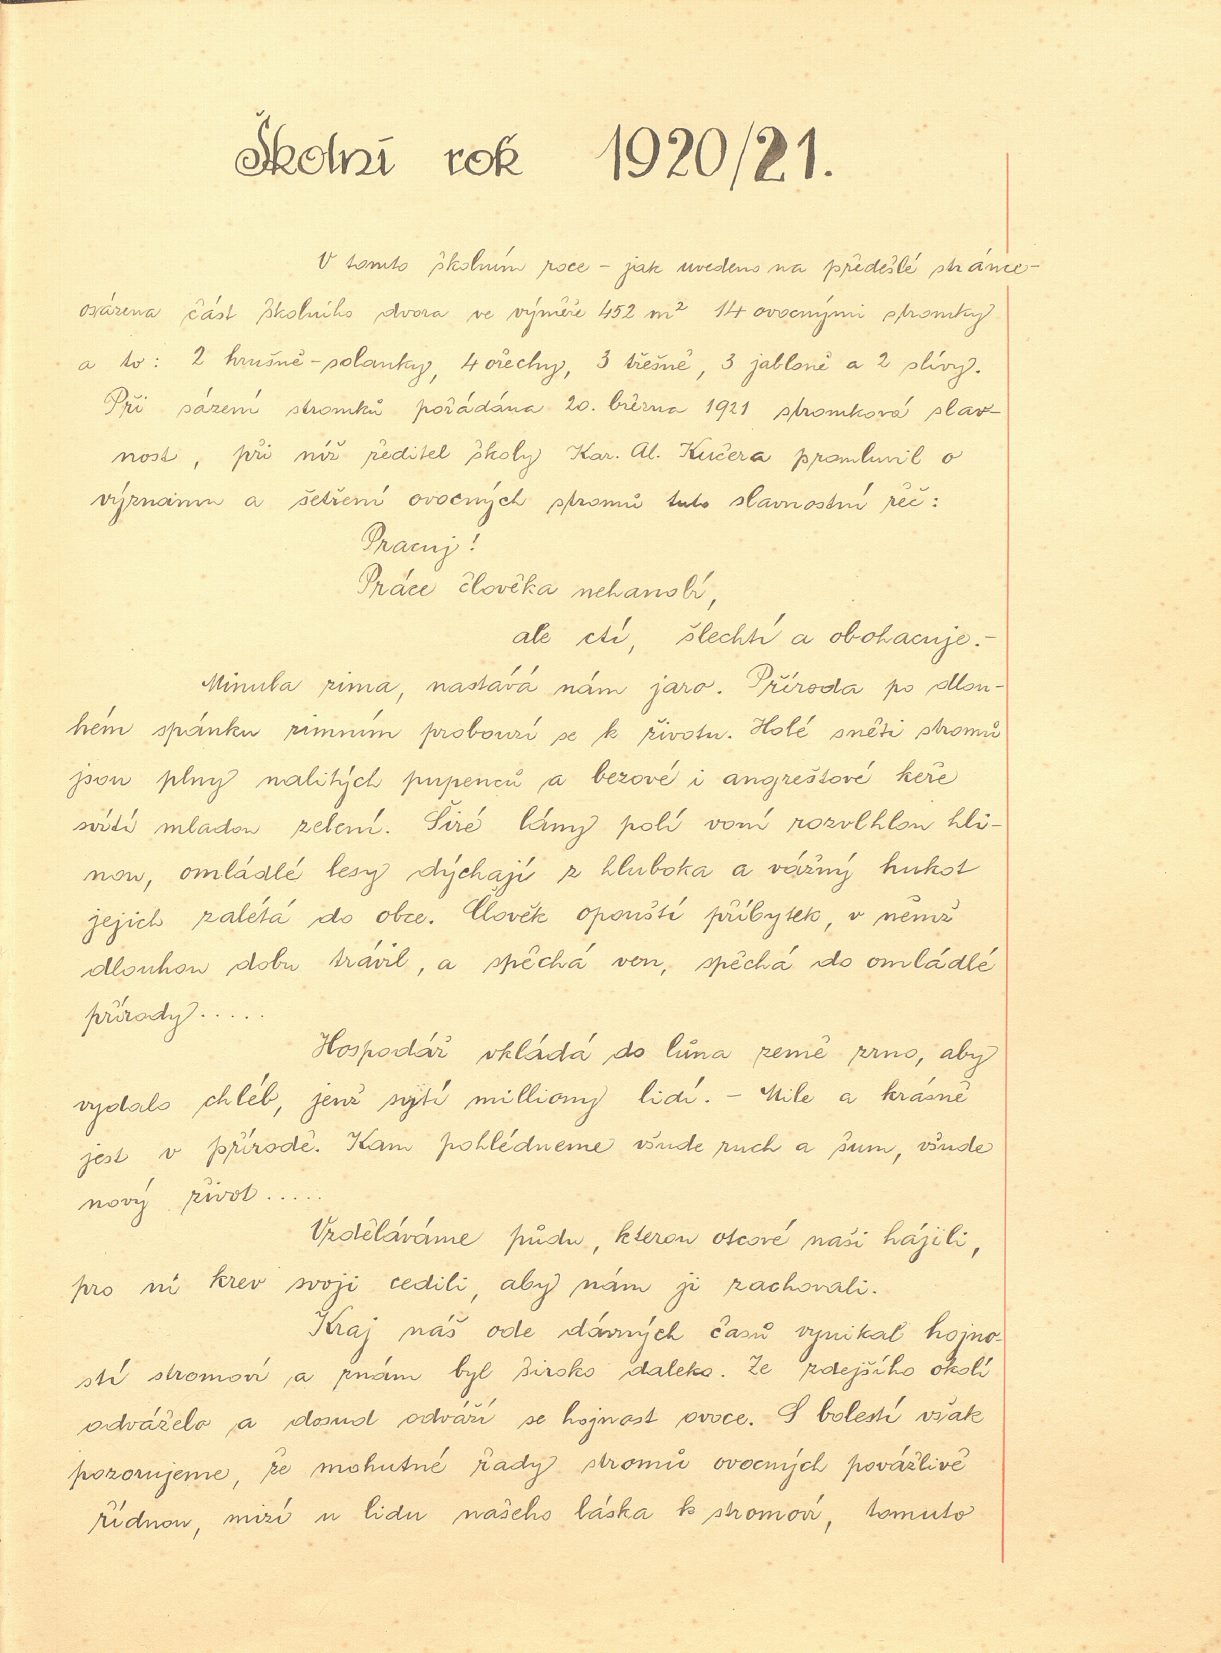 Školní rok 1920/21.
V tomto školním roce – jak uvedeno na předešlé stránce –
osázena část školního dvora ve výměře 452 m² 14 ovocnými stromky
a to: 2 hrušně-solanky, 4 ořechy, 3 třešně, 3 jabloně a 2 slívy.
Při sázení stromků pořádána 20. března 1921 stromková slav-
nost, při níž ředitel školy Kar. Al. Kučera promluvil o
významu a šetření ovocných stromů tuto slavnostní řeč:
Pracuj!
Práce člověka nehanobí,
ale ctí, šlechtí a obohacuje.–
Minula zima, nastává nám jaro. Příroda po dlou-
hém spánku zimním probouzí se k životu. Holé sněti stromů
jsou plny nalitých pupenců a bezové i angreštové keře
svítí mladou zelení. Širé lány polí voní rozvlhlou hlí-
nou, omládlé lesy dýchají z hluboka a vážný hukot
jejich zalétá do obce. Člověk opouští příbytek, v němž
dlouhou dobu trávil, a spěchá ven, spěchá do omládlé
přírody.....
Hospodář vkládá do lůna země zrno, aby
vydalo chléb, jenž sytí milliony lidí. – Mile a krásně
jest v přírodě. Kam pohlédneme všude ruch a šum, všude
nový život.....
Vzděláváme půdu, kterou otcové naši hájili,
pro ni krev svoji cedili, aby nám ji zachovali.
Kraj náš ode dávných časů vynikal hojno-
stí stromoví a znám byl široko daleko. Ze zdejšího okolí
odváželo a dosud odváží se hojnost ovoce. S bolestí však
pozorujeme, že mohutné řady stromů ovocných povážlivě
řídnou, mizí u lidu našeho láska k stromoví, tomuto